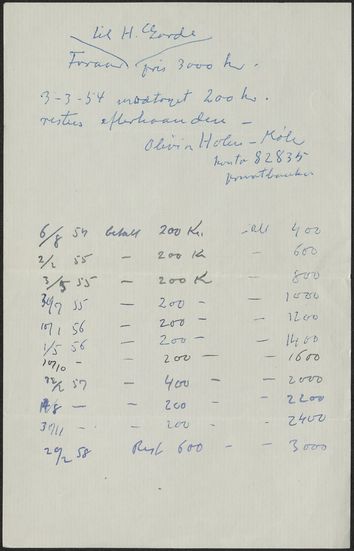 til H.
pris 3000 kr.
3-3-54 modtaget 200 kr.
resten efterhaanden -
Olivia Holm - Møller
konto 82835
privatbanken
6/8 54 betalt 200 Kr. - alt 400
2/2 55 - 200 Kr - 600
3/5 55 - 200 Kr - 800
55 - 200 - - 1000
10/1 56 - 200 - - 1200
1/5 56 - 200 - - 1400
10/10 - - 200 - - 1600
57 - 400 - - 2000
- - 200 - - 2200
- - 200 - - 2400
58 Rest 600 - - 3000